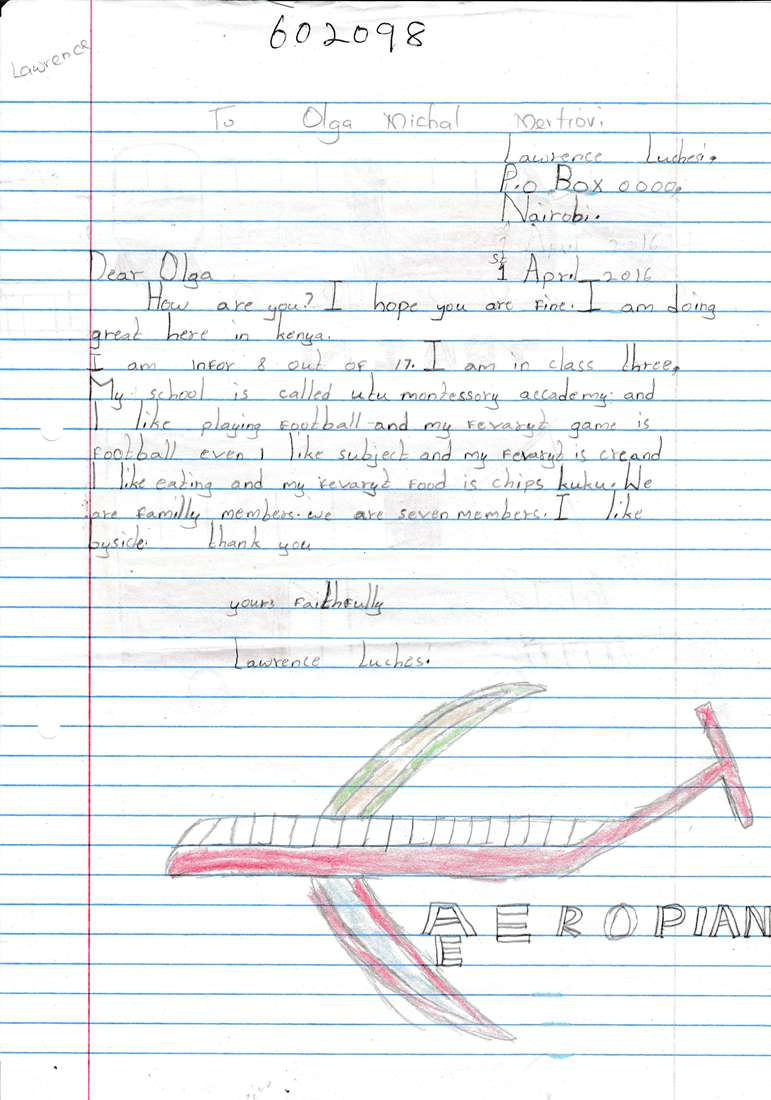 602098
Lawrence
To Olga Michal
Lawrence Luchesi.
P.o Box 0000.
Nairobi.
Dear Olga
1st April 2016
How are you? I hope you are fine. I am doing
great here in kenya.
I am infor 8 out of 17. I am in class three,
My school is called utu montessory accademy. and
I like playing football and my fevaryt game is
football even I like subject and my fevaryt is creand
I like eating and my fevaryt food is chips kuku. We
are familly members. we are seven members. I like
bysicle. thank you
yours faithfully
Lawrence Luches.
AEROPlAN
E